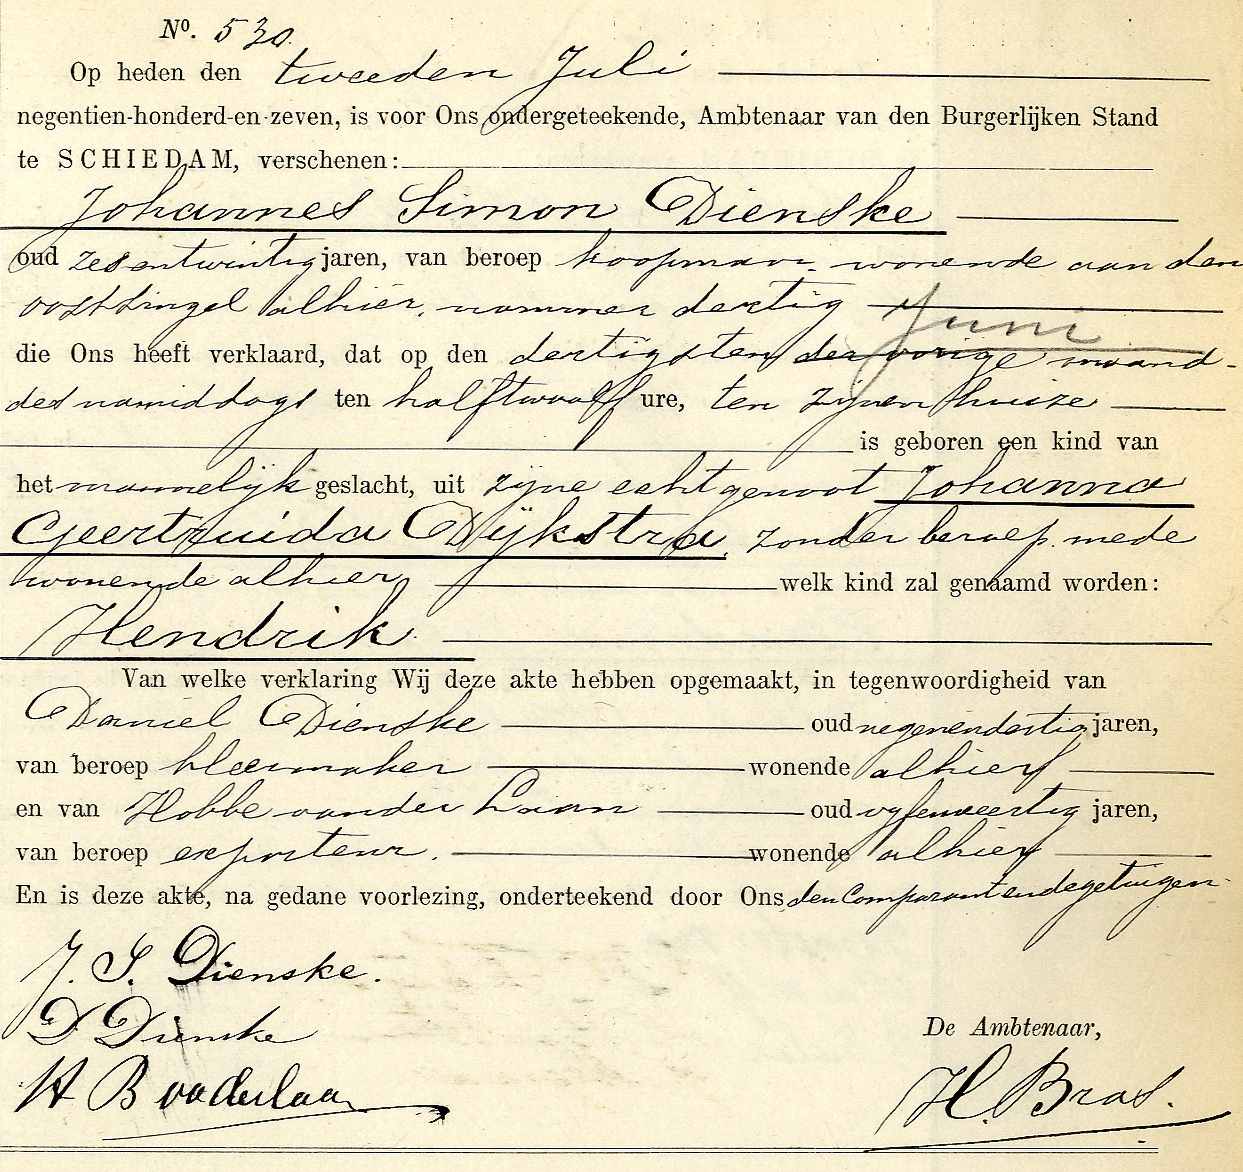 No. 530.
Op heden den tweeden Juli
negentien-honderd-en-zeven, is voor Ons ondergeteekende, Ambtenaar van den Burgerlijken Stand
te SCHIEDAM, verschenen:
Johannes Simon Dienske
oud zesentwintig jaren, van beroep koopman wonende aan den
oostsingel alhier, nommer dertig
Juni
die Ons heeft verklaard, dat op den dertigsten der vorige maand
des namiddags ten halftwaalf ure, ten zijnen huize
is geboren een kind van
het mannelijk geslacht, uit zijne echtgenoot Johanna
Geertruida Dijkstra, zonder beroep, mede
wonende alhier, welk kind zal genaamd worden:
Hendrik.
Van welke verklaring Wij deze akte hebben opgemaakt, in tegenwoordigheid van
Daniel Dienske oud negenendertig jaren,
van beroep kleermaker wonende alhier
en van Hobbe van der Laan oud vijfenveertig jaren,
van beroep exporteur. wonende alhier
En is deze akte, na gedane voorlezing, onderteekend door Ons, den comparant en de getuigen.
J. S. Dienske.
D Dienske
De Ambtenaar,
H B vd Laan
H. Bras.